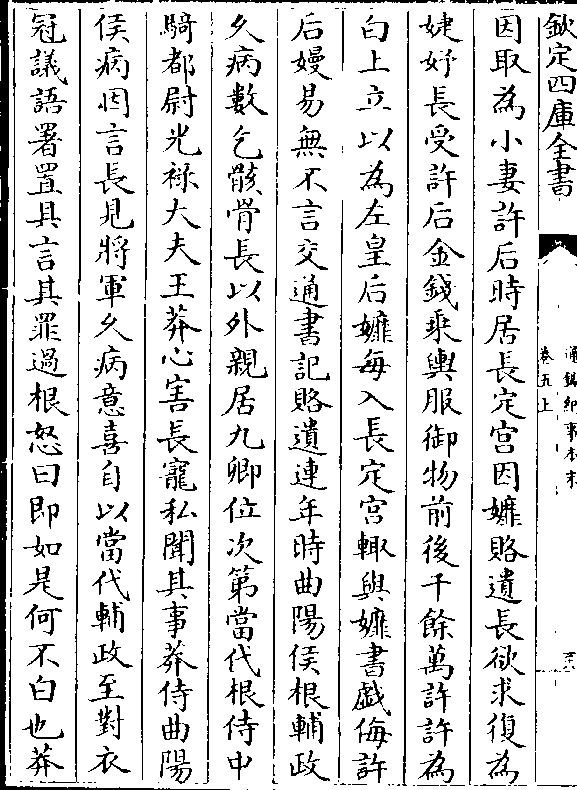 欽定四庫全書
通鑑紀事本末
卷五上
因取為小妻許后時居長定宫因嬺賂遺長欲求復為
婕妤長受許后金錢乘輿服御物前後千餘萬詐許為
白上立以為左皇后嬺每入長定宫輙與嬺書戯侮許
后嫚易無不言交通書記賂遺連年時曲陽侯根輔政
久病數乞骸骨長以外親居九卿位次第當代根侍中
騎都尉光祿大夫王莽心害長寵私聞其事莽侍曲陽
侯病因言長見將軍久病意喜自以當代輔政至對衣
冠議語署置具言其罪過根怒曰即如是何不白也莽